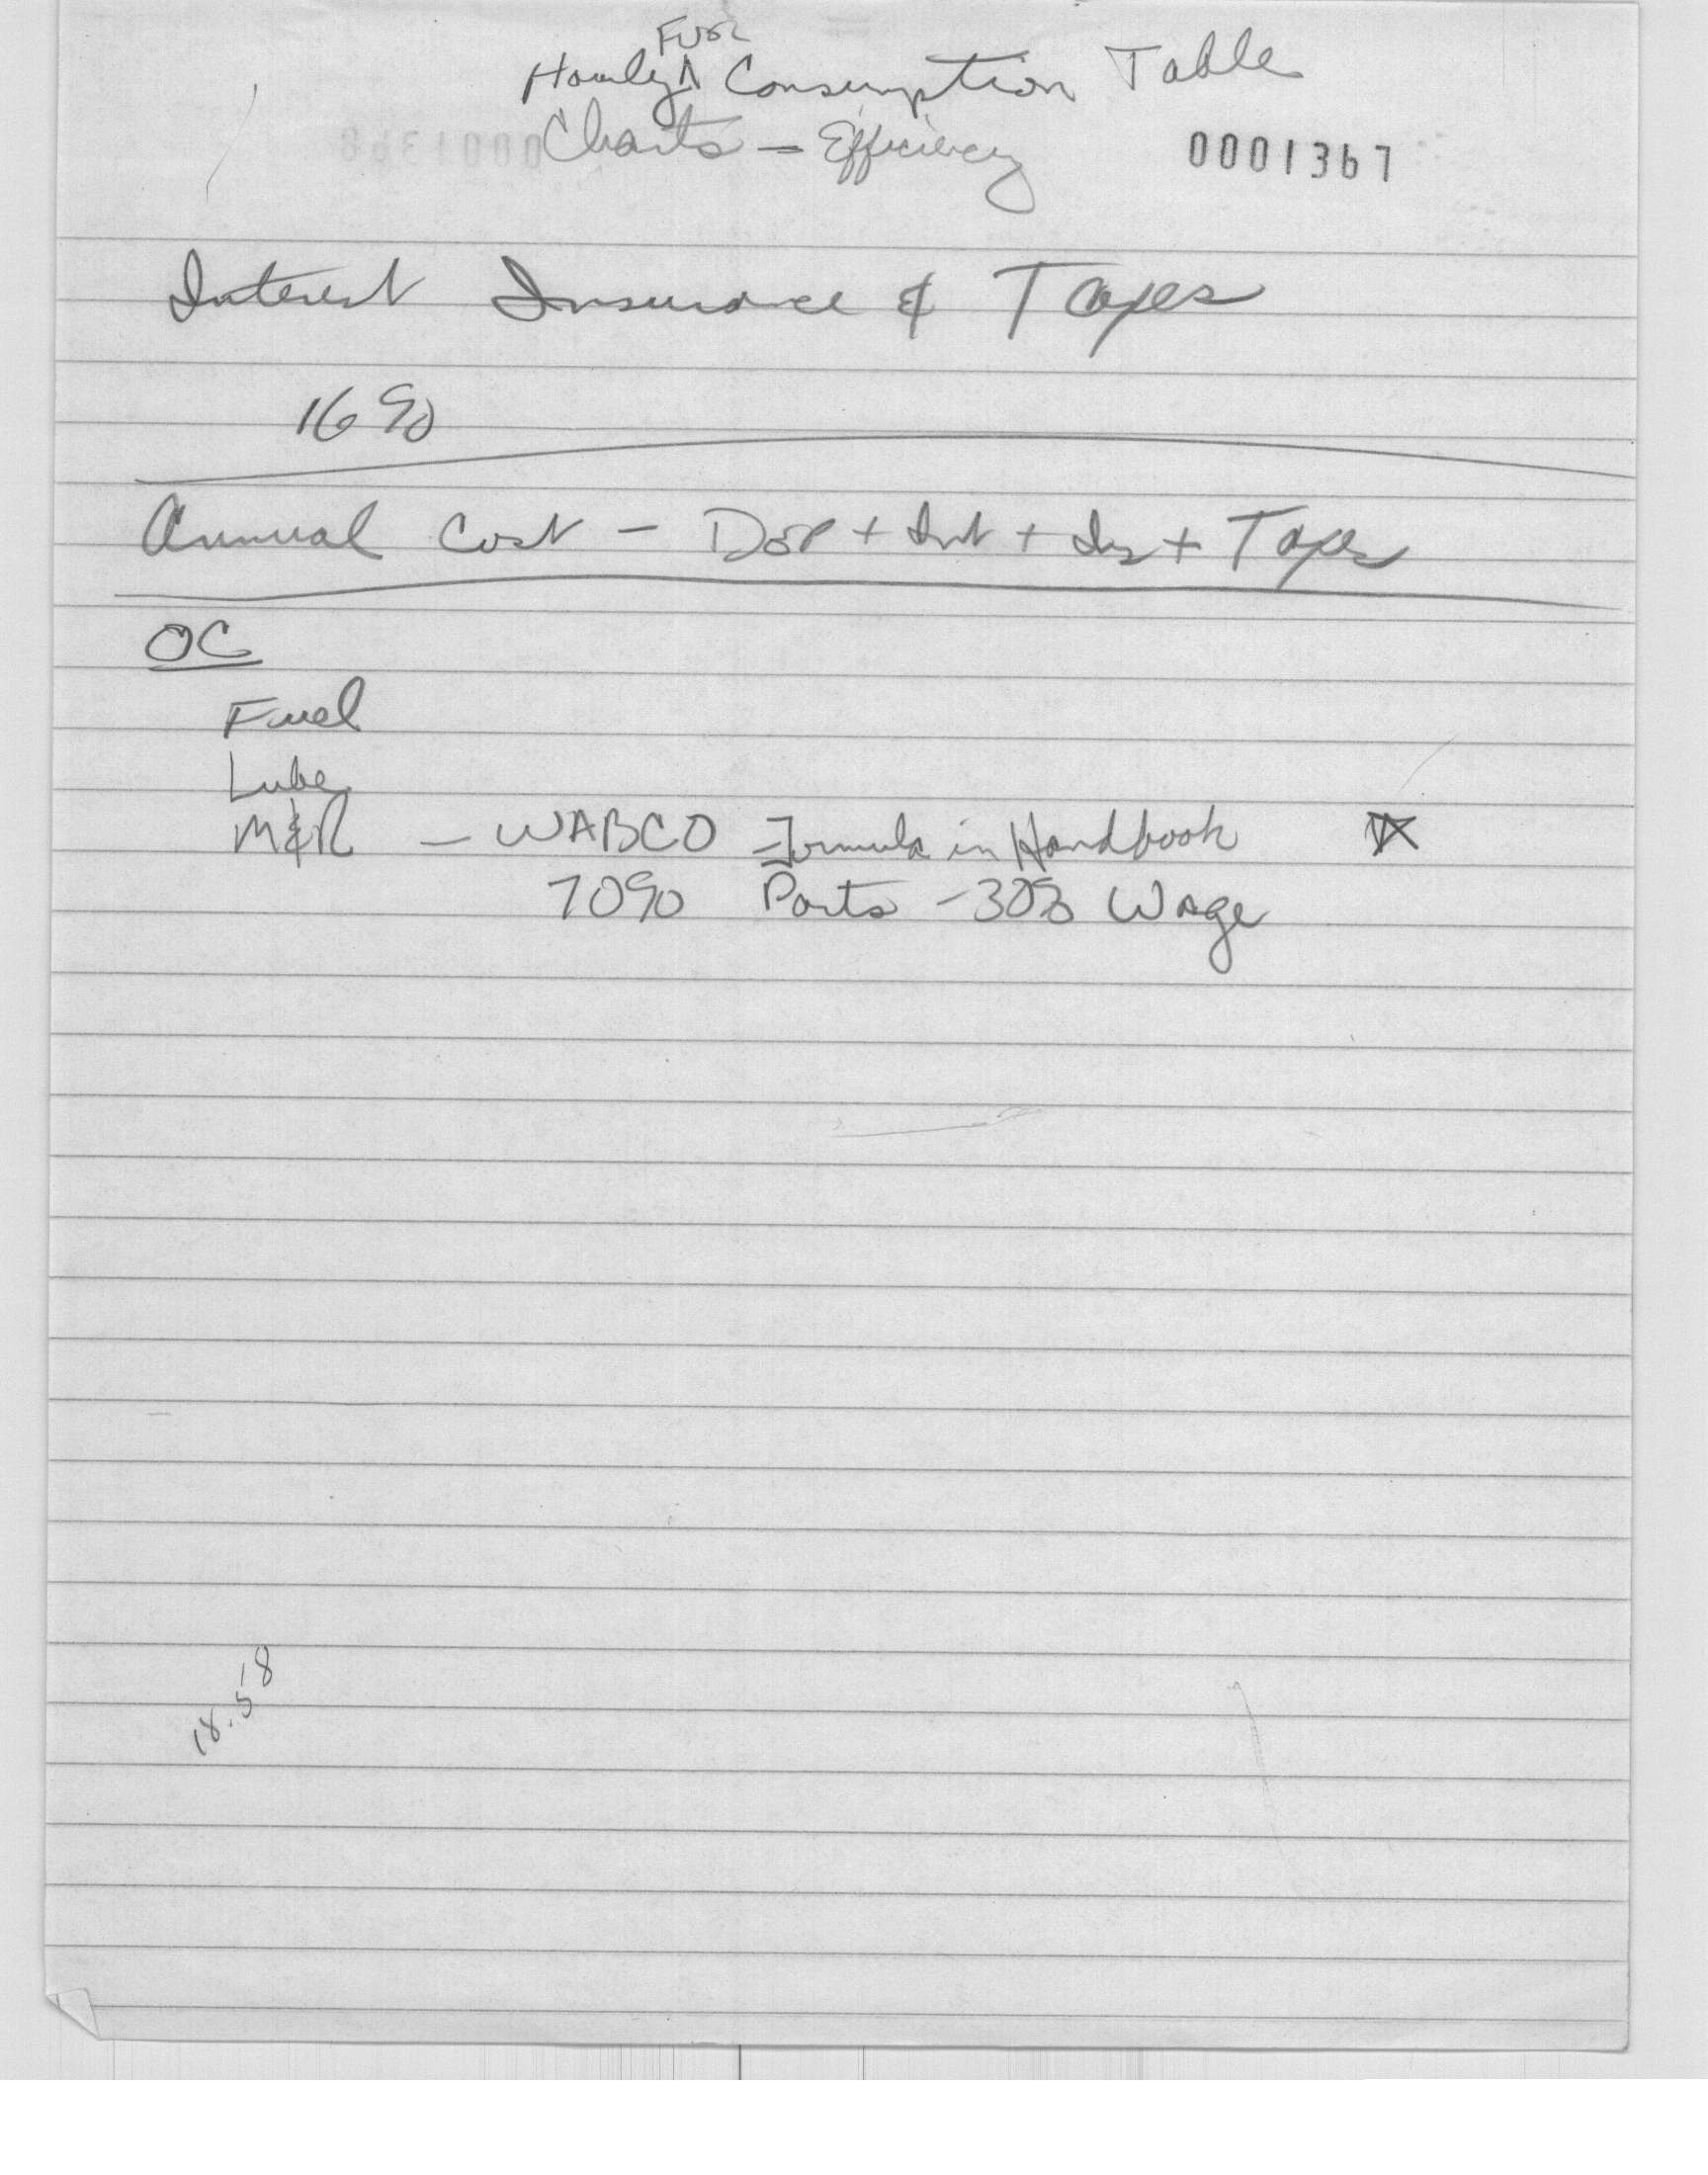 Hourly Fuel Consumption Table
Charts - Efficiency 0001367
Interest Insurance & Taxes
16%
Annual Cost - Dep + Int + Ins + Taxes
OC
Fuel
Lube
M&R - WABCO Formula in Handbook
70% Parts - 30% Wage
18.518